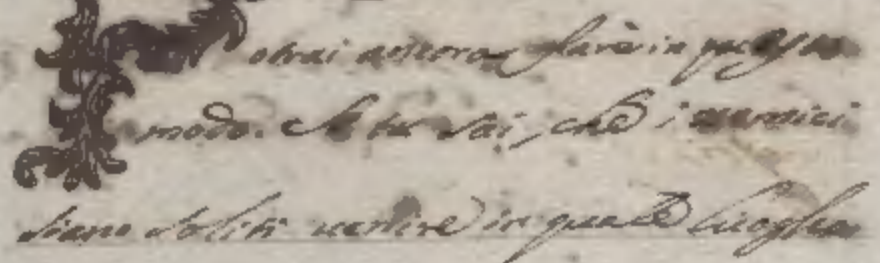 Potrai ancora stare in questo
modo. Se tu sai, che i nemici
siano soliti venire in quelle luogho